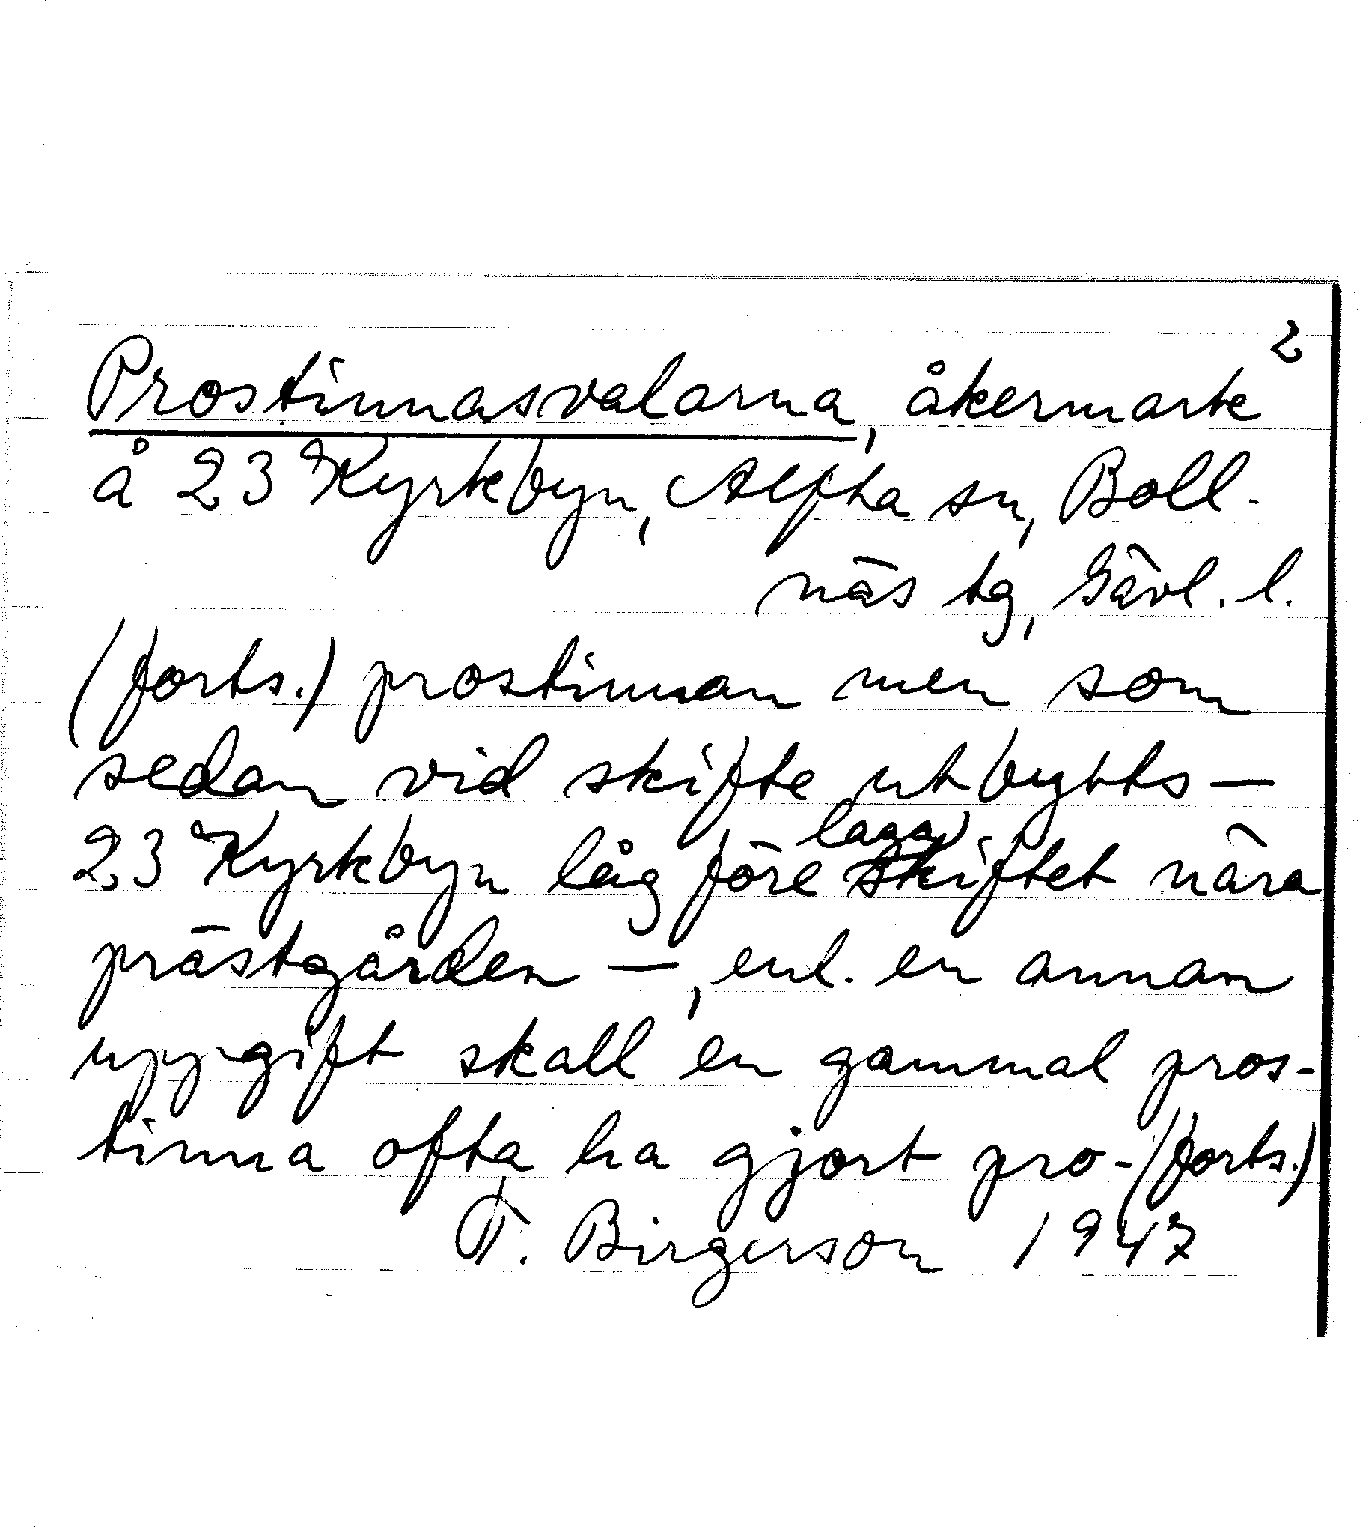 2
Prostinnasvalarna, åkermark
å 23 Kyrkbyn, Alfta sn, Boll-
näs tg, Gävl. l.
(forts.) prostinnan men som
sedan vid skifte utbytts —
23 Kyrkbyn låg före laga skiftet nära
prästgården —, enl. en annan
uppgift skall en gammal pros-
tinna ofta ha gjort pro- (forts.)
T. Birgerson 1947